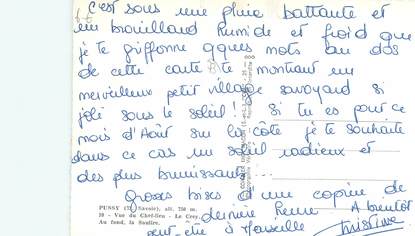 c'est sous une pluie battante et
un brouillard humide et froid que
je te griffonne qques mots au dos
de cette carte te montrant un
merveilleux petit village savoyard si
joli sous le soleil! Si tu es pour ce
mois d'Août sur la côte je te souhaite
dans ce cas un soleil radieux et
des plus brunissants...
Grosses bises d'une copine de
dernière heure. A bientôt
peut-être à Marseille Christine
PUSSY (73, Savoie), alt. 750 m.
20 - Vue du Chef-lieu - Le Crey.
Au fond, la Sautire.